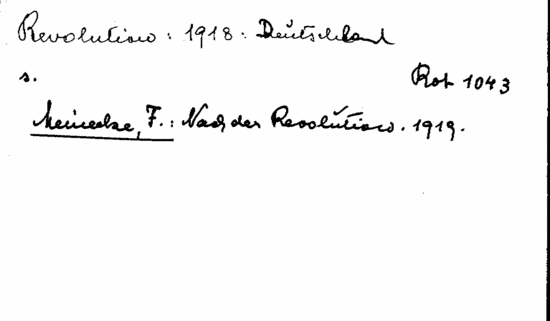 Revolution : 1918 : Deutschland
s. Rot 1043
Meinecke, F. : Nach der Revolution. 1919.